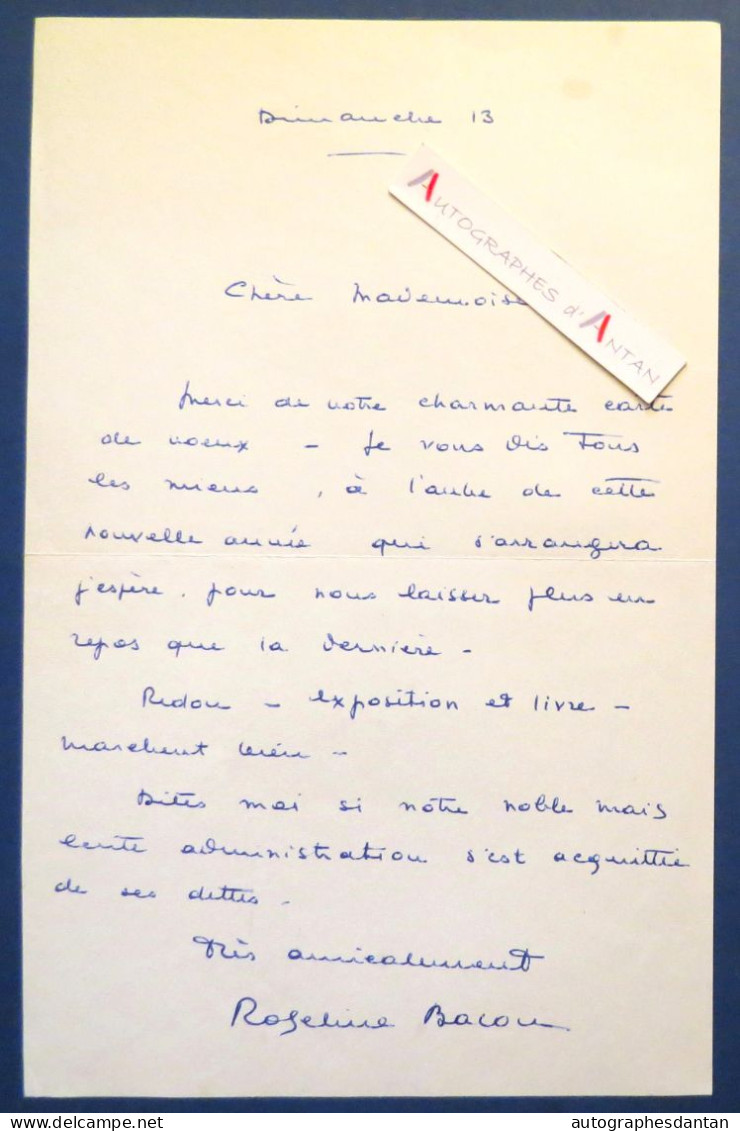 Dimanche 13
AUTOGRAPHES d'ANTAN
Chère Mademoise
Merci de votre charmante carte
de voeux – Je vous dis tous
les miens, à l'aube de cette
nouvelle année qui s'arrangera
j'espère, pour nous laisser plus en
repos que la dernière –
Redon – exposition et livre –
marchent bien –
Dites moi si notre noble mais
lente administration s'est acquittée
de ses dettes –
Très amicalement
Roseline Bacou
delcampe.net
autographesdantan